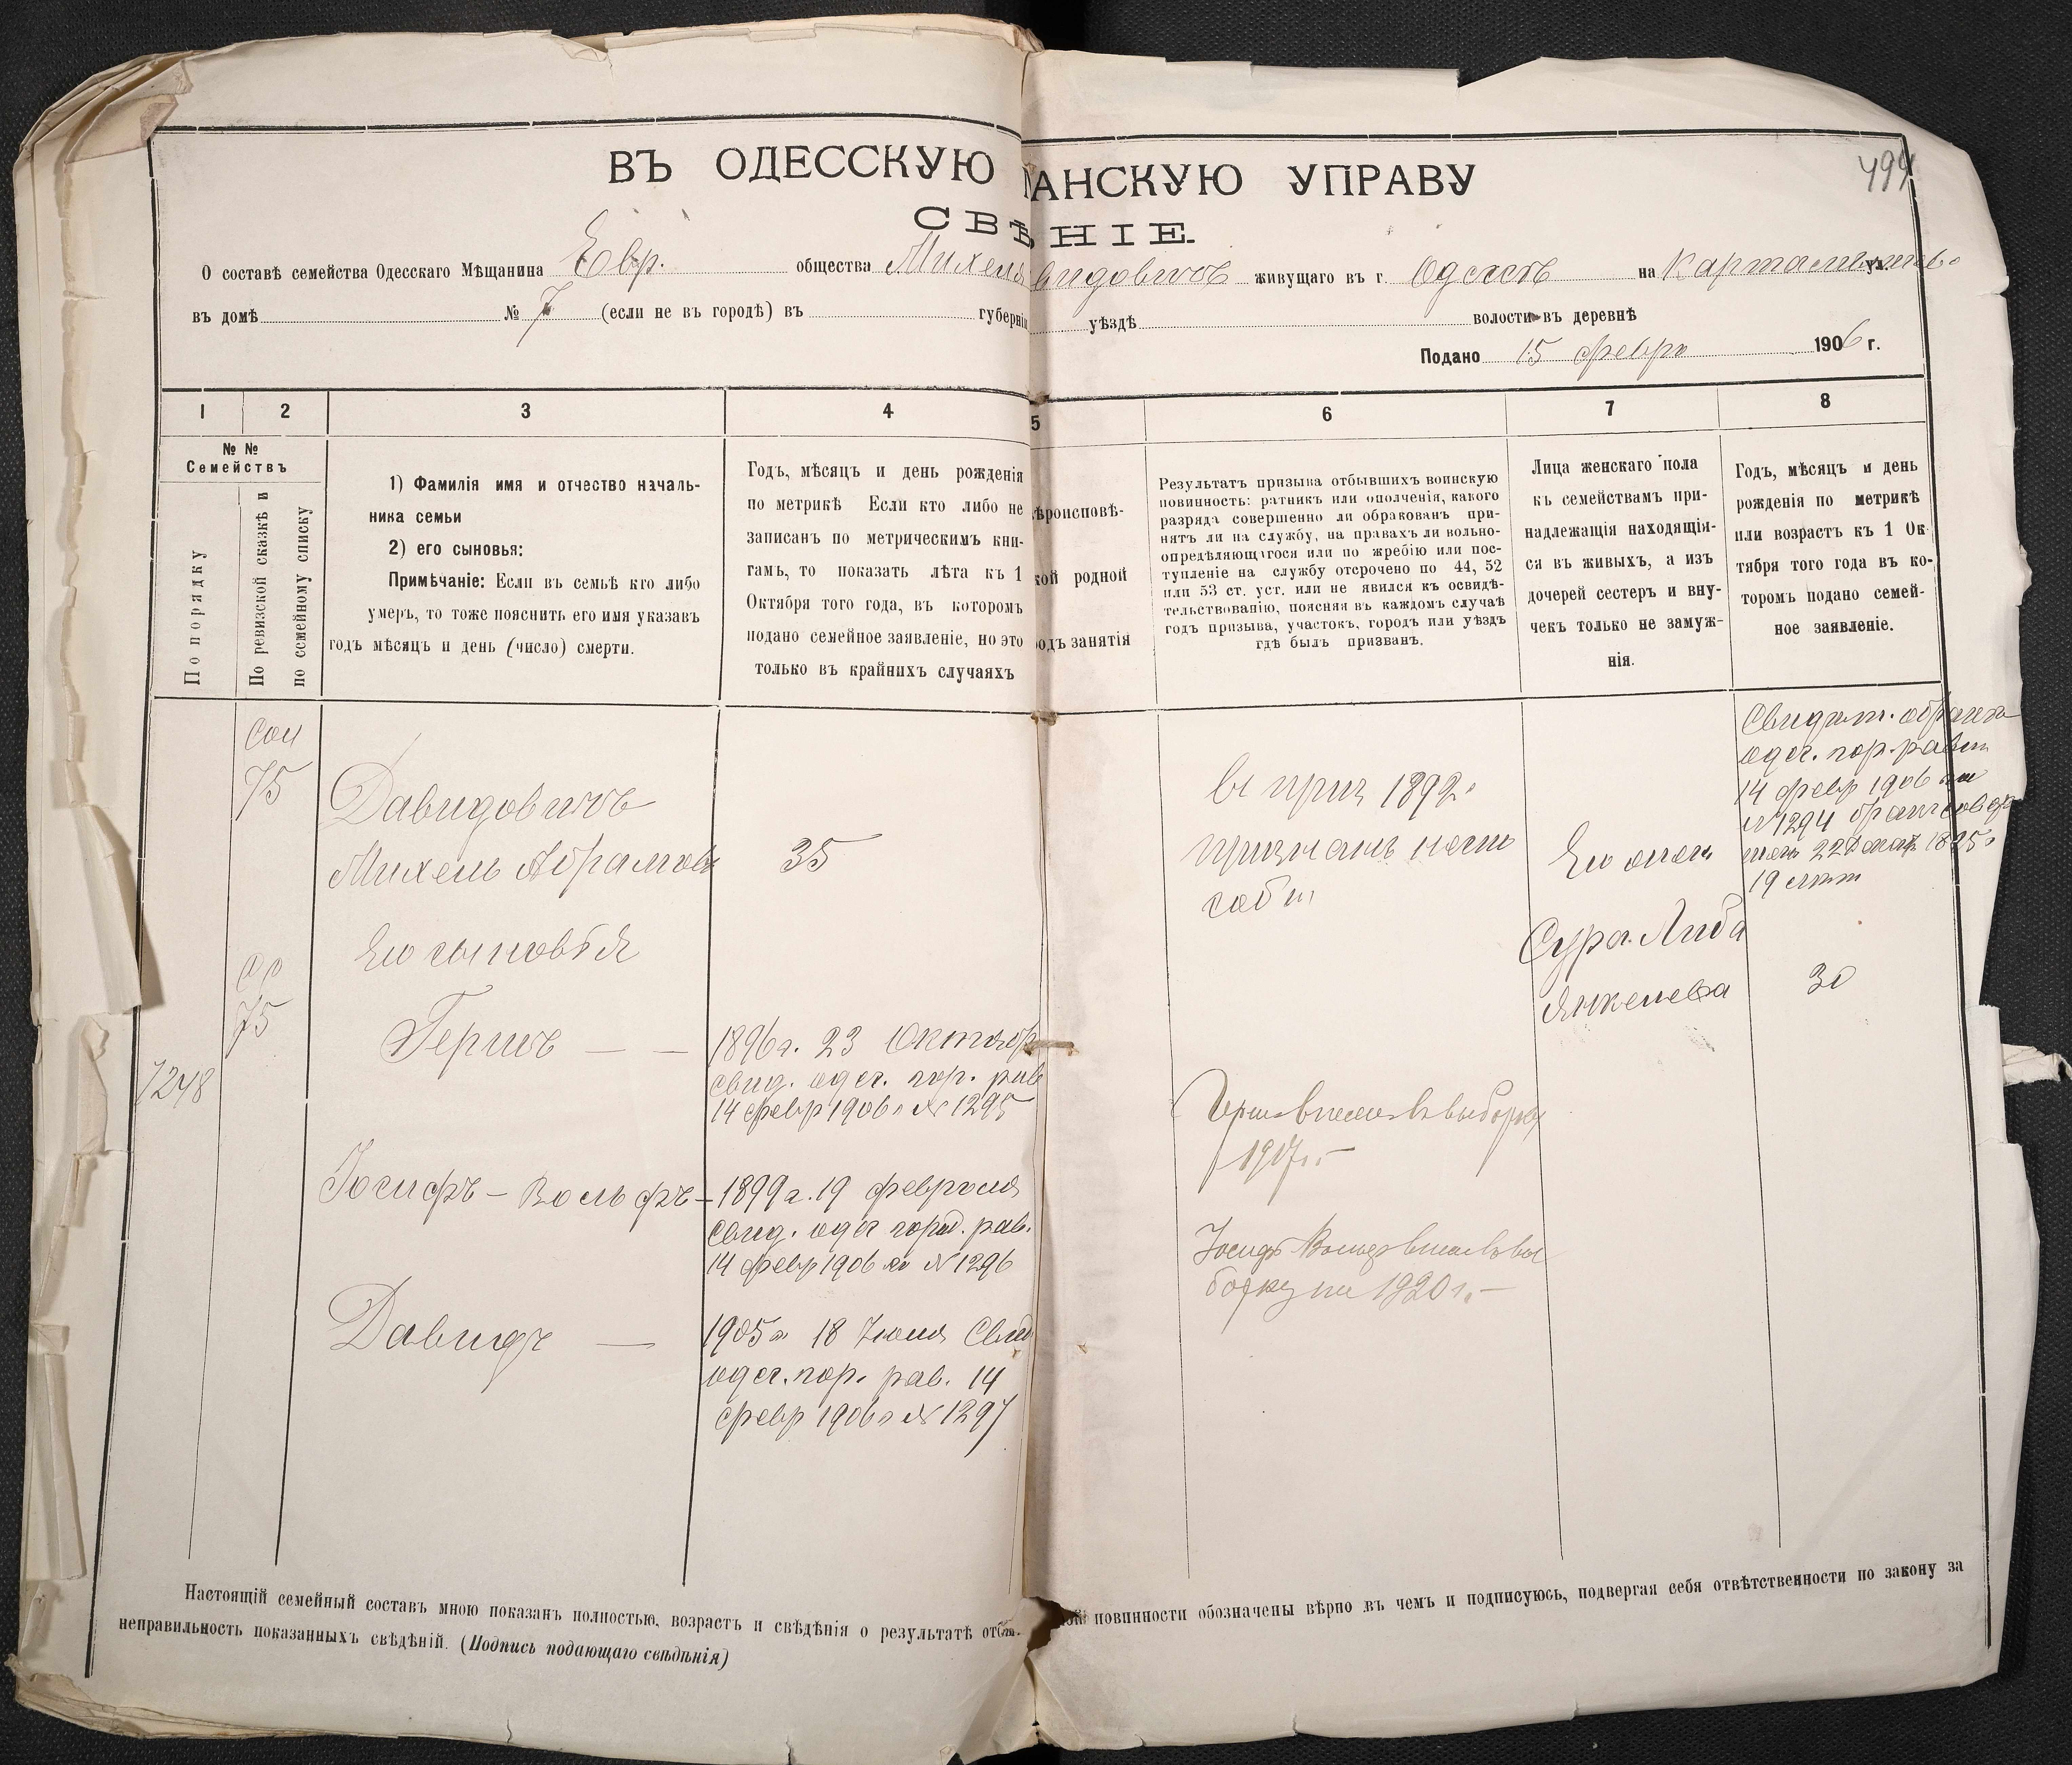 499
ВЪ ОДЕССКУЮ АНСКУЮ УПРАВУ
СВѢНІЕ.
О составѣ семейства Одесскаго Мѣщанина Евр. общества Михеля видовичъ живущаго въ г. Одессѣ на
въ домѣ № 7 (если не въ городѣ) въ губерніи уѣздѣ волости въ деревнѣ
Подано 15 февр 1906 г.
1 2 3 4 5 6 7 8
№ №
Семействъ
По порядку
По ревизской сказкѣ и
по семейному списку
1) Фамилія имя и отчество началь-
ника семьи
2) его сыновья:
Примѣчаніе: Если въ семьѣ кто либо
умеръ, то тоже пояснить его имя указавъ
годъ мѣсяцъ и день (число) смерти.
Годъ, мѣсяцъ и день рожденія
по метрикѣ Если кто либо не
записанъ по метрическимъ кни-
гамъ, то показать лѣта къ 1
Октября того года, въ которомъ
подано семейное заявленіе, но это
только въ крайнихъ случаяхъ
ѣроисповѣ-
кой родной
одъ занятія
Результатъ призыва отбывшихъ воинскую
повинность: ратникъ или ополченія, какого
разряда совершенно ли обракованъ при-
нятъ ли на службу, на правахъ ли вольно-
опредѣляющагося или по жребію или пос-
тупленіе на службу отсрочено по 44, 52
или 53 ст. уст. или не явился къ освидѣ-
тельствованію, поясняя въ каждомъ случаѣ
годъ призыва, участокъ, городъ или уѣздъ
гдѣ былъ призванъ.
Лица женскаго пола
къ семействамъ при-
надлежащія находящія-
ся въ живыхъ, а изъ
дочерей сестеръ и вну-
чекъ только не замуж-
нія.
Годъ, мѣсяцъ и день
рожденія по метрикѣ
или возрастъ къ 1 Ок-
тября того года въ ко-
торомъ подано семей-
ное заявленіе.
75
Давидовичъ
Михель Абрамовъ
35
Его сыновья
75
Гершъ — —
1896 г. 23 Октябр
свид. одес. гор. рав
14 февр 1906 г № 1295
7248
Іосифъ - Вольфъ -
1899 г. 19 февраля
свид. одес город. рав.
14 февр 1906 г № 1296
Давидъ —
1905 г 18 Іюля Свид
одес. гор. рав. 14
февр 1906 г № 1297
въ приз 1892 г
признанъ
1917 г. -
на 1920 г. -
Его жена
Сура Либа
Янкелева
одес. гор. равин
14 февр 1906
№ 1294
19 лѣт
30
Настоящій семейный составъ мною показанъ полностью, возрастъ и свѣдѣнія о результатѣ отб ной повинности обозначены вѣрно въ чемъ и подписуюсь, подвергая себя отвѣтственности по закону за
неправильность показанныхъ свѣдѣній. (Подпись подающаго свѣдѣнія)